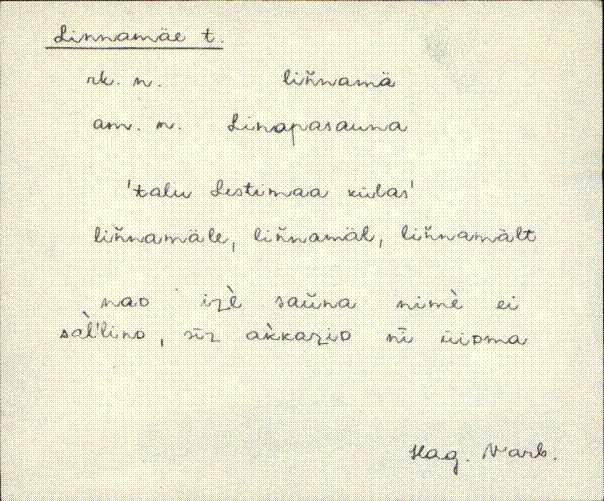 Linnamäe t.
rk. n. liňnamä
am. n. Linapasauna
'talu Lestimaa külas'
liňnamäle, liňnamäl, liňnamält
nao izè saŭna nimè ei
sàl'lino, sīz akkazio nī üioma
Hag. Varb.